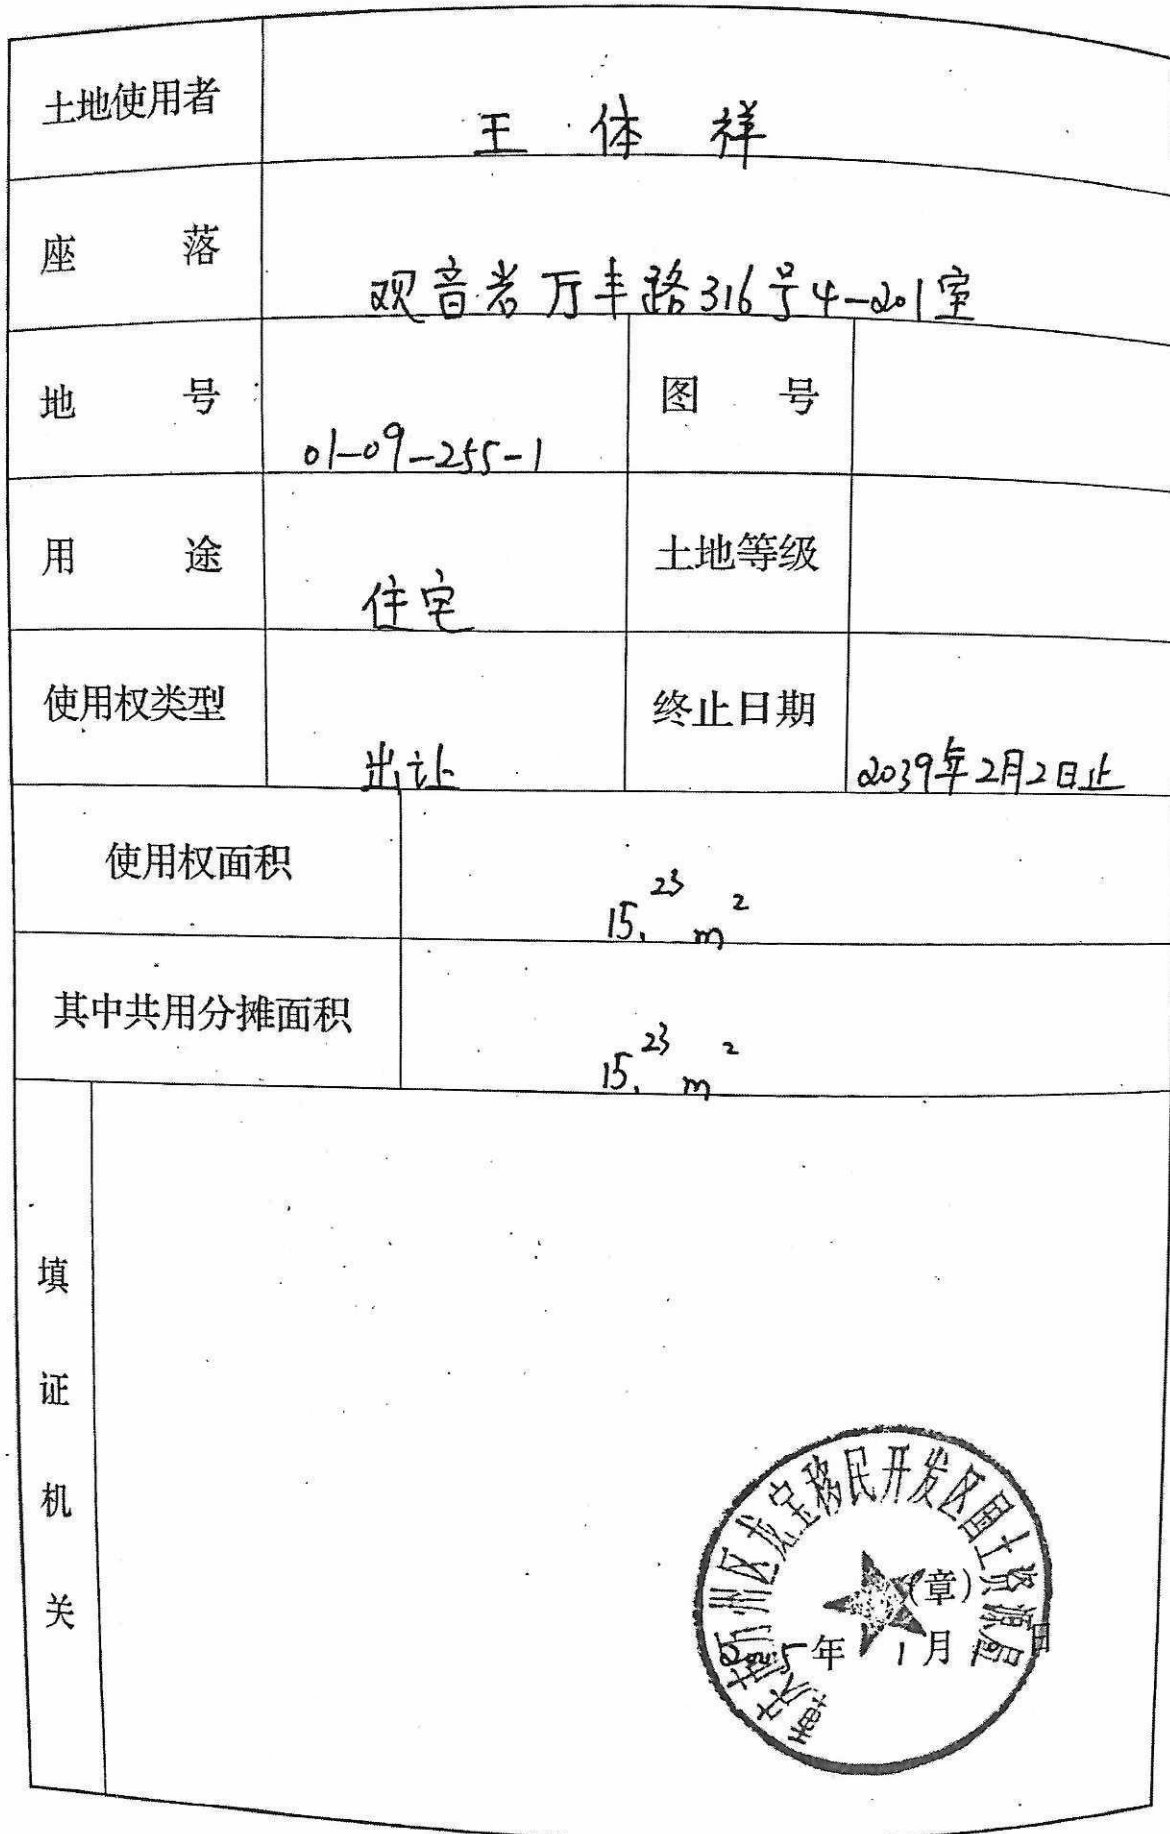 土地使用者 王体祥
座落 观音岩万丰路316号4-201室
地号 01-09-255-1 图号
用途 住宅 土地等级
使用权类型 出让 终止日期 2039年2月2日止
使用权面积 15.23 m²
其中共用分摊面积 15.23 m²
填证机关
重庆市万州区龙宝移民开发区国土资源局
(章)
2005年1月 日